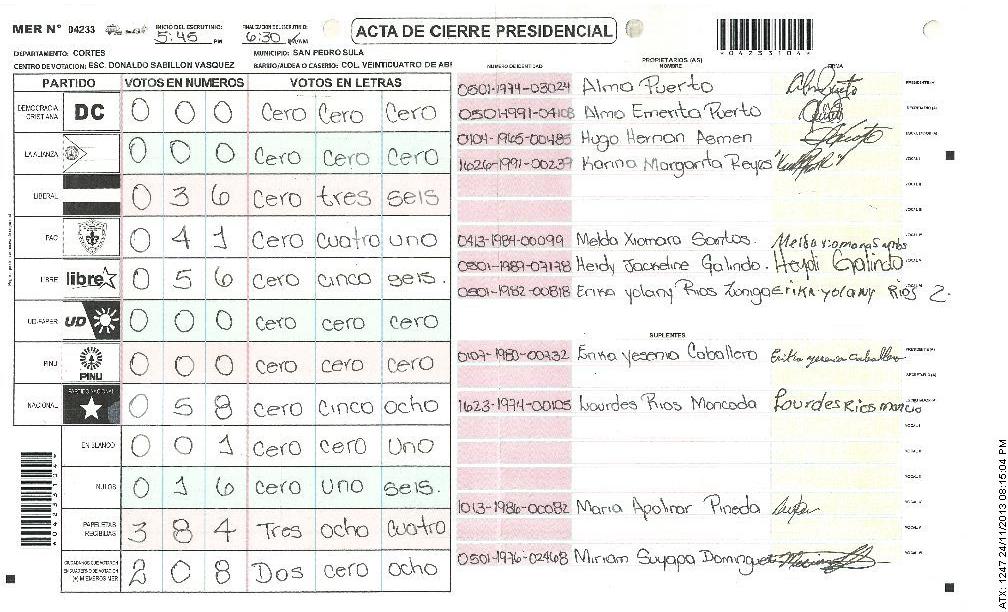 MER N° 04233
INICIO DEL ESCRUTINIO:
5:45 PM
FINALIZACION DEL ESCRUTINIO:
6:30
ACTA DE CIERRE PRESIDENCIAL
*04233104*
DEPARTAMENTO: CORTES
MUNICIPIO: SAN PEDRO SULA
CENTRO DE VOTACION: ESC. DONALDO SABILLON VASQUEZ
BARRIO/ALDEA O CASERIO: COL. VEINTICUATRO DE ABI
PARTIDO VOTOS EN NUMEROS VOTOS EN LETRAS
DEMOCRACIA CRISTIANA DC 0 0 0 Cero Cero Cero
LA ALIANZA 0 0 0 Cero Cero Cero
LIBERAL 0 3 6 Cero tres seis
PAC 0 4 1 Cero cuatro uno
LIBRE libre 0 5 6 Cero cinco seis.
UD-FAPER UD 0 0 0 cero cero cero
PINU PINU 0 0 0 cero cero cero
NACIONAL PARTIDO NACIONAL 0 5 8 cero cinco ocho
EN BLANCO 0 0 1 cero cero uno
NULOS 0 1 6 cero uno seis.
PAPELETAS RECIBIDAS 3 8 4 Tres ocho cuatro
CIUDADANOS QUE VOTARON EN CUADERNO DE VOTACION (+) MIEMBROS MER 2 0 8 Dos cero ocho
NUMERO DE IDENTIDAD
PROPIETARIOS (AS)
NOMBRE
FIRMA
0501-1974-03024 Alma Puerto
0501-1991-04108 Alma Emerita Puerto
0104-1965-00485 Hugo Hernan
1626-1991-00239 Karina Margarita Reyes
0413-1984-00099 Melda Xiomara Santos.
0501-1989-07178 Heidy Jackeline Galindo. Heydi Galindo
0501-1982-00818 Erika yolany Rios Zuniga Erika yolany Rios Z.
SUPLENTES
0107-1980-00732 Erika yesenia Caballero Erika yesenia caballero
1623-1974-00105 Lourdes Rios Moncada Lourdes Rios
1013-1986-00082 Maria Apolinar Pineda
0501-1976-02468 Miriam Suyapa Dominguez
ATX: 1247 24/11/2013 08:15:04 PM